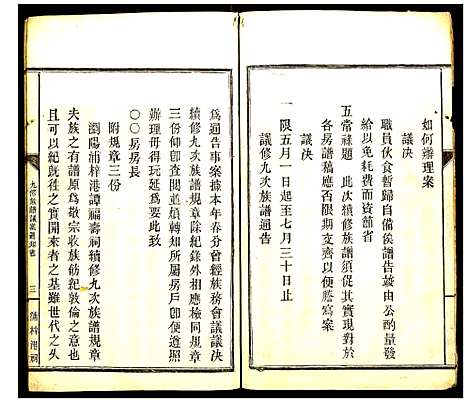 如何辦理案
議决
職員伙食暫歸自備俟譜告竣由公酌量發
給以免耗費而資節省
五常祿題　此次續修族譜須促其實現對於
各房譜稿應否限期交齊以便謄寫案
議决
一　限五月一日起至七月三十日止
議修九次族譜通告
為通告事案據本年春分會經族務會議議決
續修九次族譜規章除紀錄外相應檢同規章
三份仰卽查閱並煩轉知所屬房戶卽便遵照
辦理毋得玩延爲要此致
○○房房長
附規章三份
瀏陽浦梓港譚福壽祠續修九次族譜規章
夫族之有譜原爲敬宗收族飭紀敦倫之意也
且可以紀旣往之實開來者之基雖世代之久
九修族譜議案通知書
三
浦梓港祠